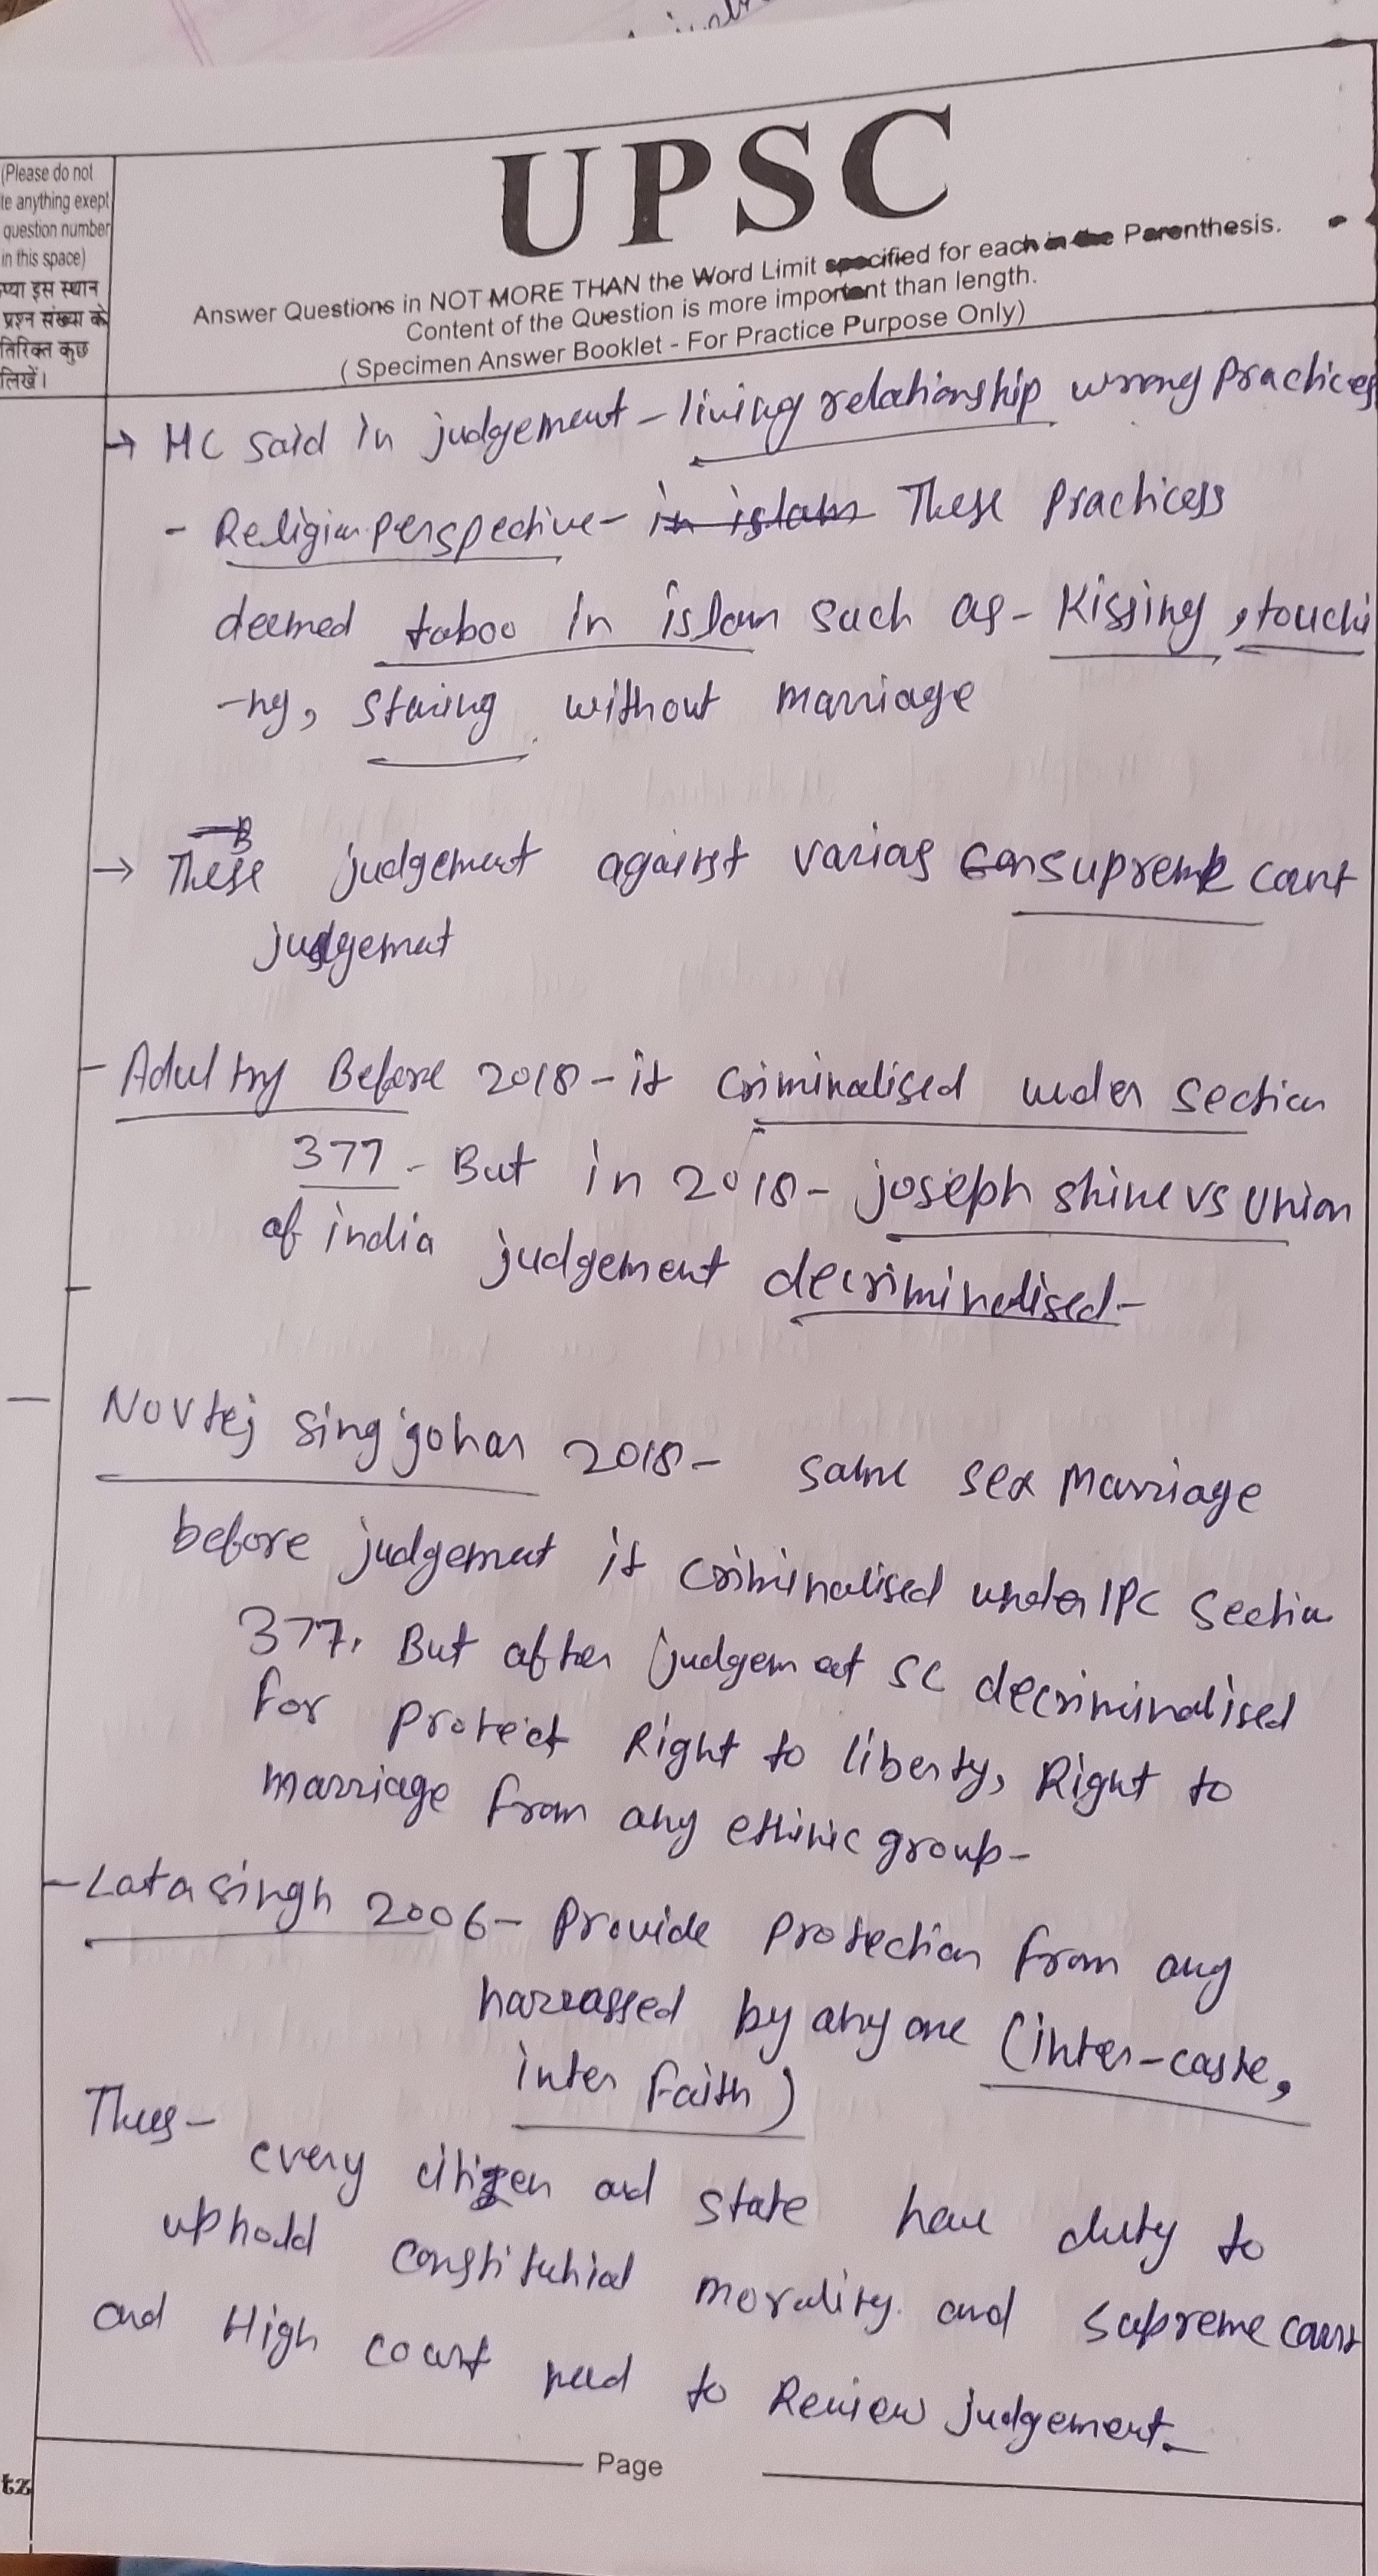 (Please do not
te anything exept
question number
in this space)
प्रश्न संख्या के
तिरिक्त कुछ
लिखें।
UPSC
Answer Questions in NOT MORE THAN the Word Limit specified for each in the Parenthesis.
Content of the Question is more important than length.
( Specimen Answer Booklet - For Practice Purpose Only)
→ HC said in judgement - living relationship wrong practices
- Religion perspective - in islam These practicess
deemed taboo in islam such as - Kissing, touchi
-ng, staring without marriage
→ These judgement against varias con supreme court
judgemet
- Adultry Before 2018 - it criminalised under section
377 - But in 2018 - joseph shine vs Union
of india judgement decriminalised -
- Novtej sing johar 2018 - same sex marriage
before judgemet it criminalised under IPC Section
377. But after judgemet SC decriminalised
for protect Right to liberty, Right to
marriage from any ethinic group -
- Lata singh 2006 - Provide protection from any
harrassed by any one (inter-caste,
inter faith)
Thus - every citizen and state have duty to
uphold constitutional morality and supreme court
and High court need to Review judgement.
Page
tz